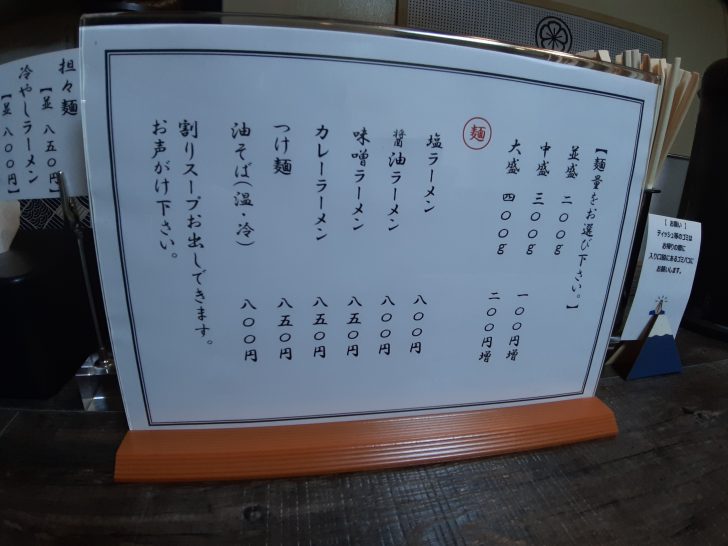 【麺量をお選び下さい。】
並盛 二〇〇g
中盛 三〇〇g 一〇〇円増
大盛 四〇〇g 二〇〇円増
麺
塩ラーメン 八〇〇円
醤油ラーメン 八〇〇円
味噌ラーメン 八五〇円
カレーラーメン 八五〇円
つけ麺 八五〇円
油そば(温・冷) 八〇〇円
割りスープお出しできます。
お声がけ下さい。
担々麺
【並 八五〇円】
冷やしラーメン
【並 八〇〇円】
[ お願い ]
ティッシュ等のゴミは
お帰りの際に
入り口脇にあるゴミバコに
お願いします。